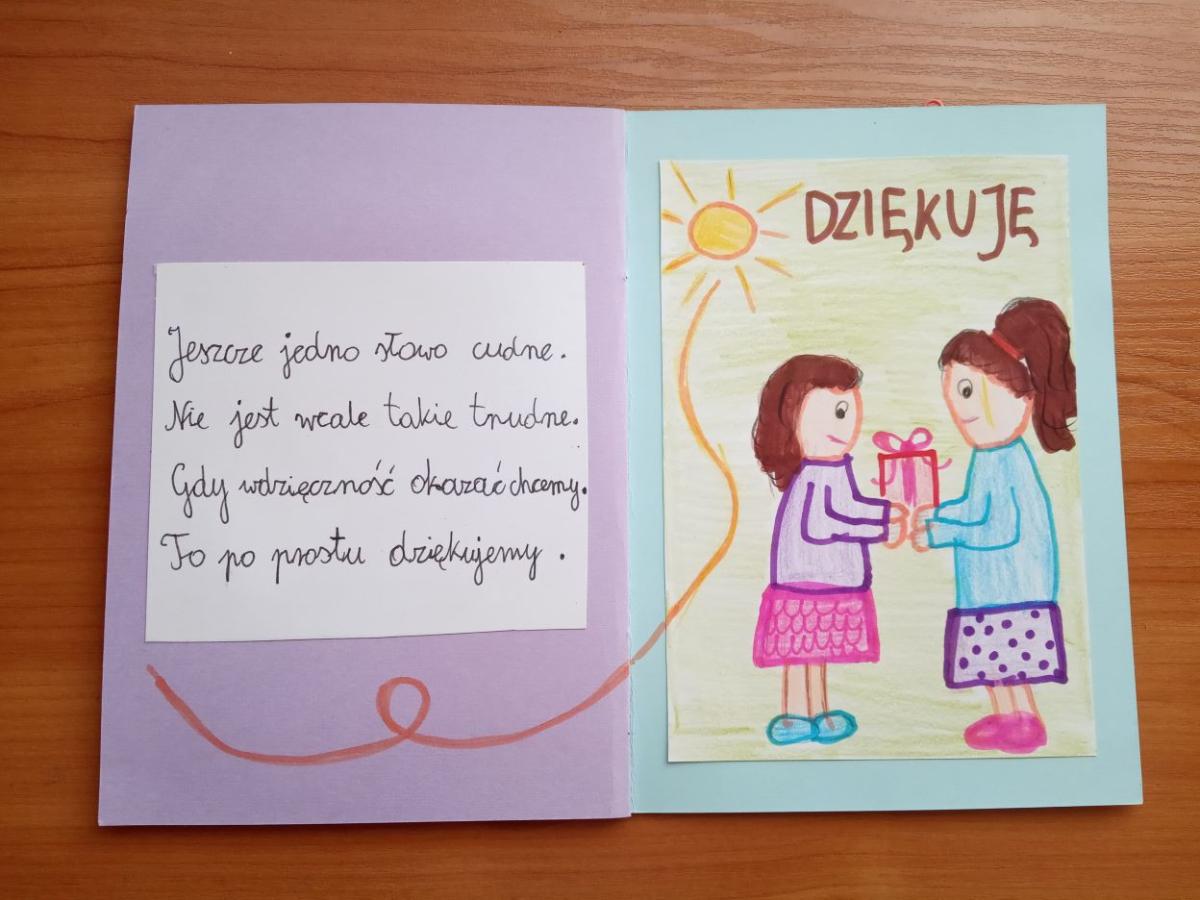 Jeszcze jedno słowo cudne.
Nie jest wcale takie trudne.
Gdy wdzięczność okazać chcemy.
To po prostu dziękujemy.
DZIĘKUJĘ